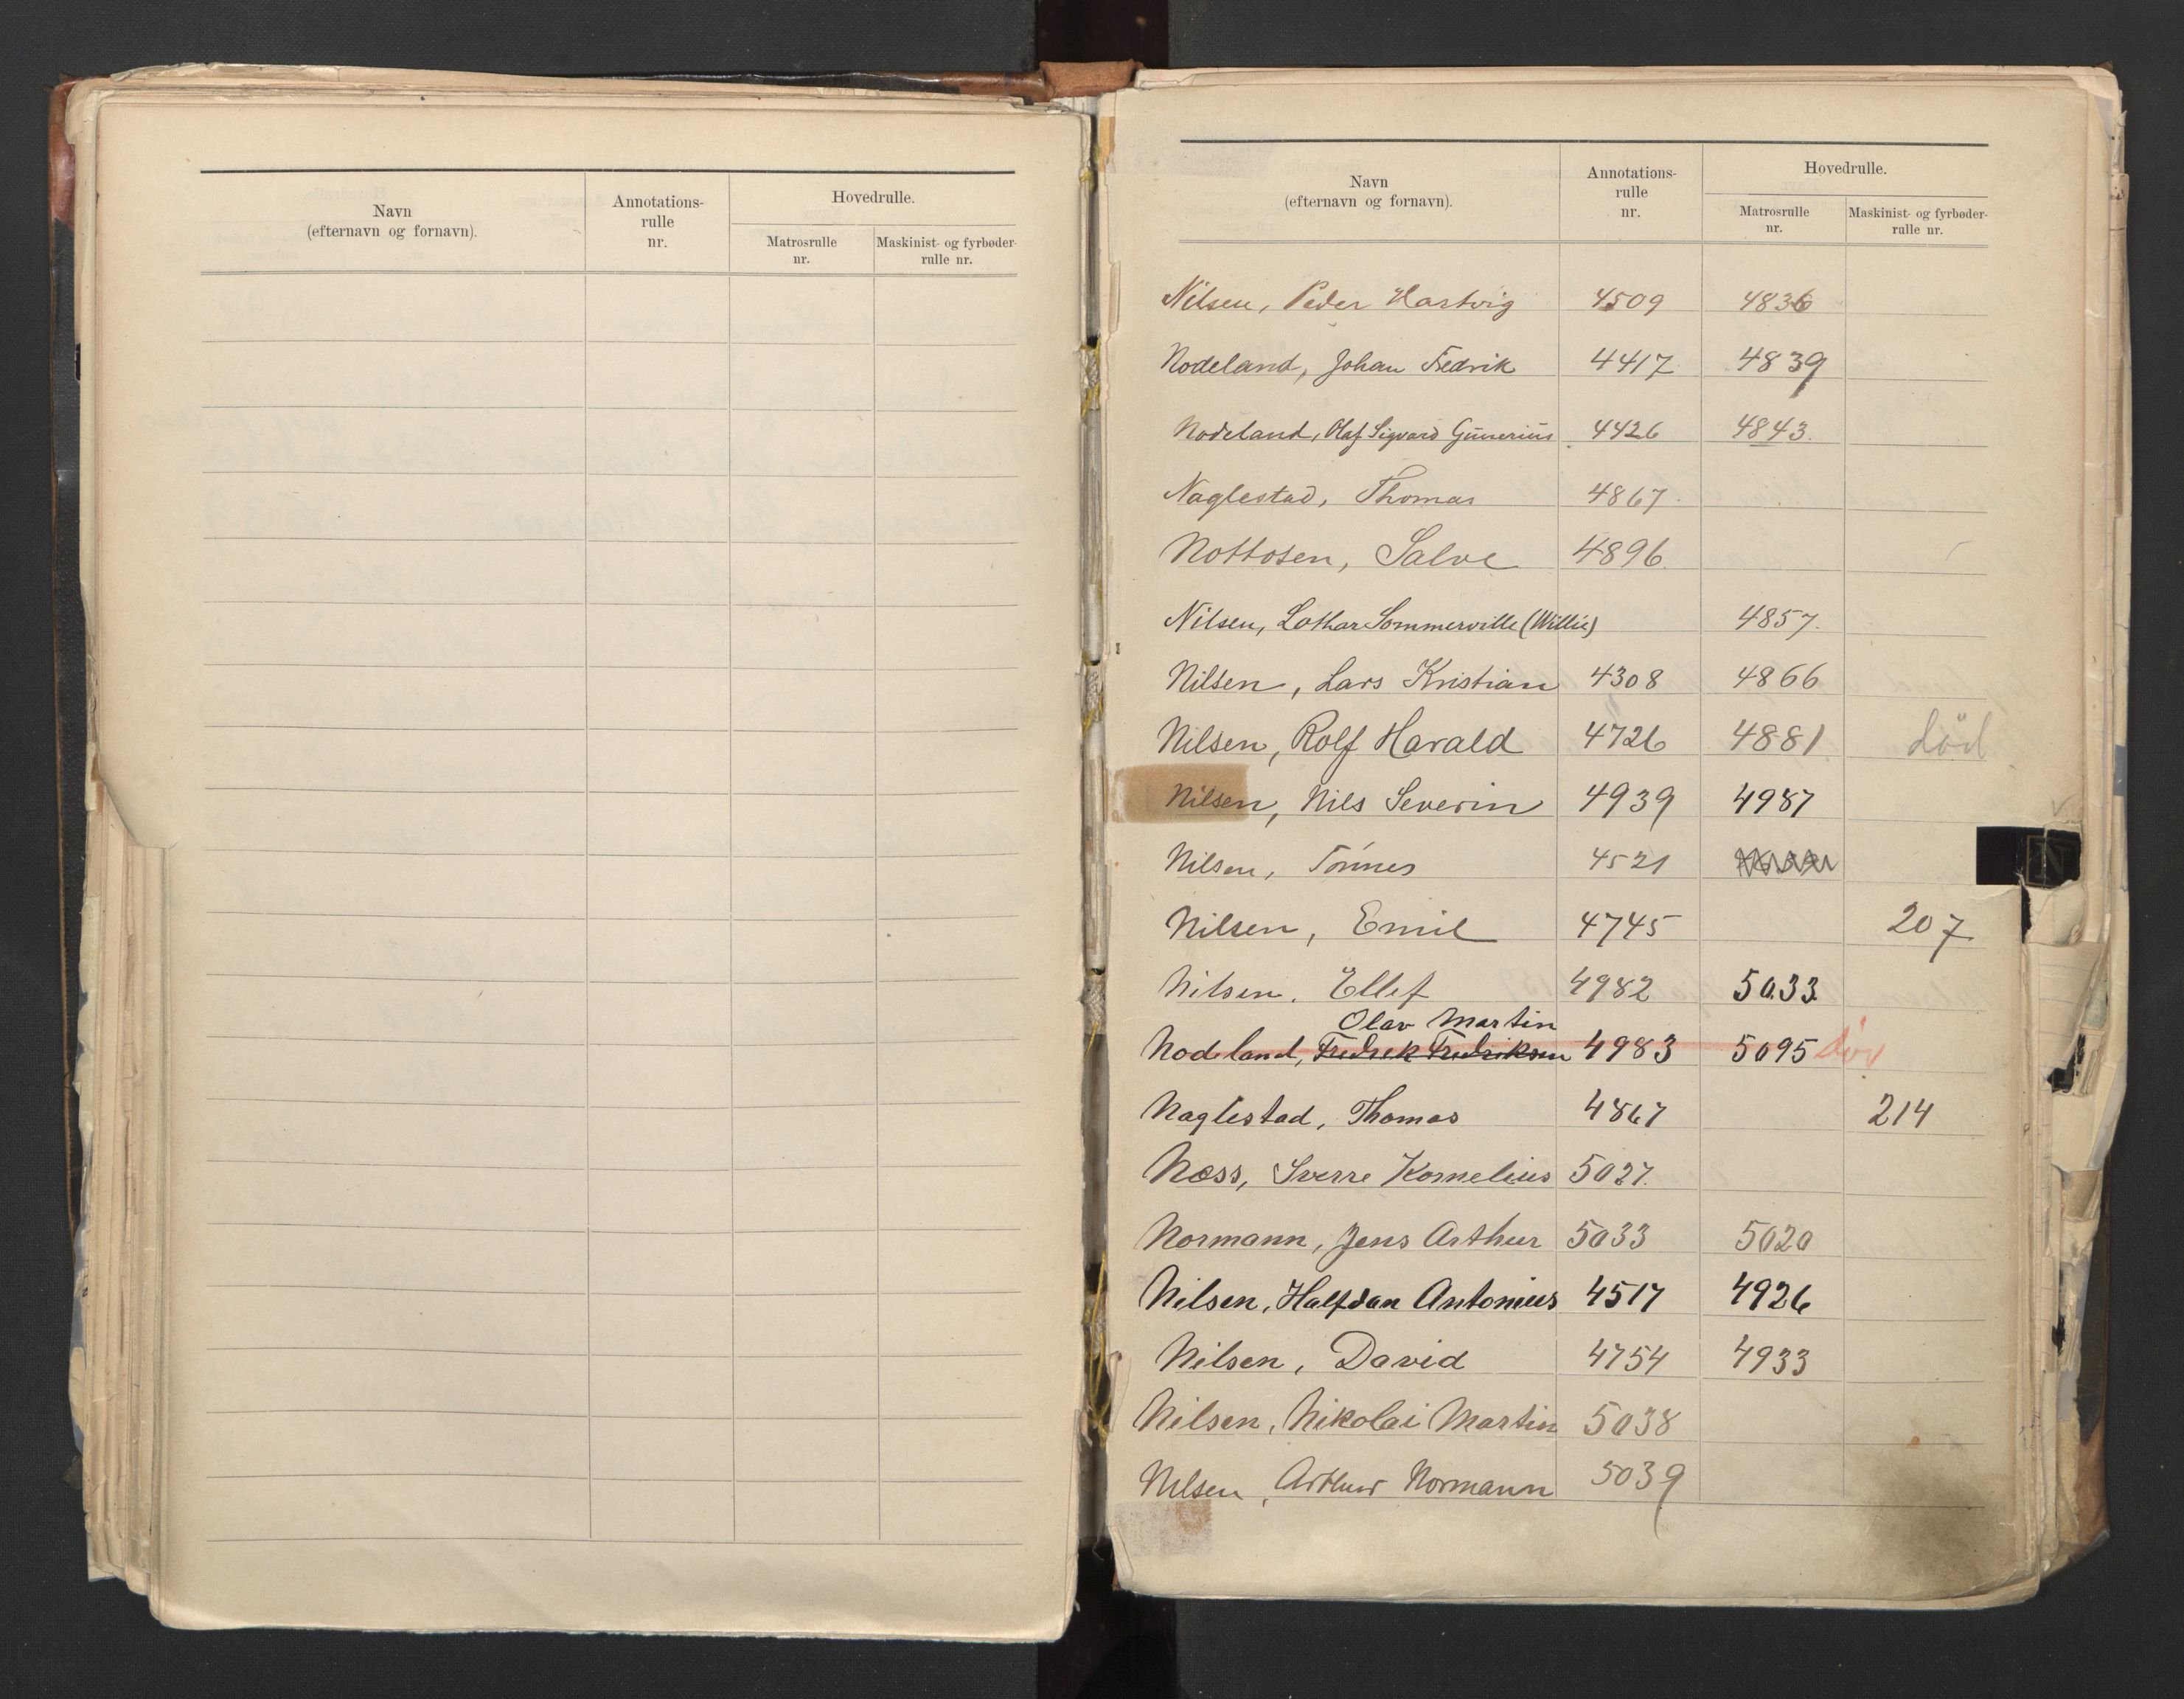 Navn
(efternavn og fornavn).
Annotations-
rulle
nr.
Hovedrulle.
Matrosrulle
nr.
Maskinist- og fyrbøder-
rulle nr.
Navn
(efternavn og fornavn).
Annotations-
rulle
nr.
Hovedrulle.
Matrosrulle
nr.
Maskinist- og fyrbøder-
rulle nr.
Nilsen, Peder Hartvig 4509 4836
Nodeland, Johan Fedrik 4417 4839
Nodeland, Olaf Sigvard Gunerius 4426 4843.
Naglestad, Thomas 4867.
Nottosen, Salve 4896.
Nilsen, Lothar Sommerville (Willie) 4857.
Nilsen, Lars Kristian 4308 4866
Nilsen, Rolf Harald 4726 4881 död
Nilsen, Nils Severin 4939 4987
Nilsen, Tönnes 4521
Nilsen, Emil 4745 207
Nilsen, Ellef 4982 5033.
Olav Martin
Nodeland, Fredrek Fredriksen 4983 5095 död
Naglestad, Thomas 4867 214
Næss, Sverre Kornelius 5027.
Normann, Jens Arthur 5033 5020
Nilsen, Halfdan Antonius 4517 4926
Nilsen, David 4754 4933
Nilsen, Nikolai Martin 5038
Nilsen, Arthur Normann 5039